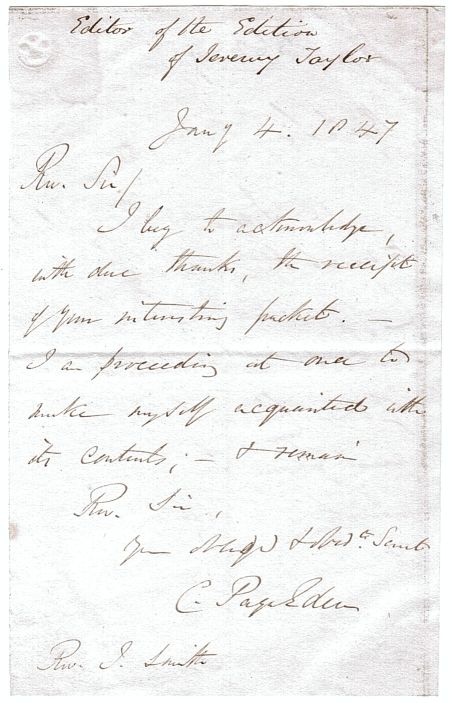 Editor of the Edition
of Jeremy Taylor
Jany 4. 1847
Rev. Sir/
I beg to acknowledge,
with due thanks, the receipt
of your interesting packet. —
I am proceeding at once to
make myself acquainted with
its contents; — & remain
Rev. Sir,
Your obliged & obedt. Servt
C. Page Eden
Rev. J. Smith